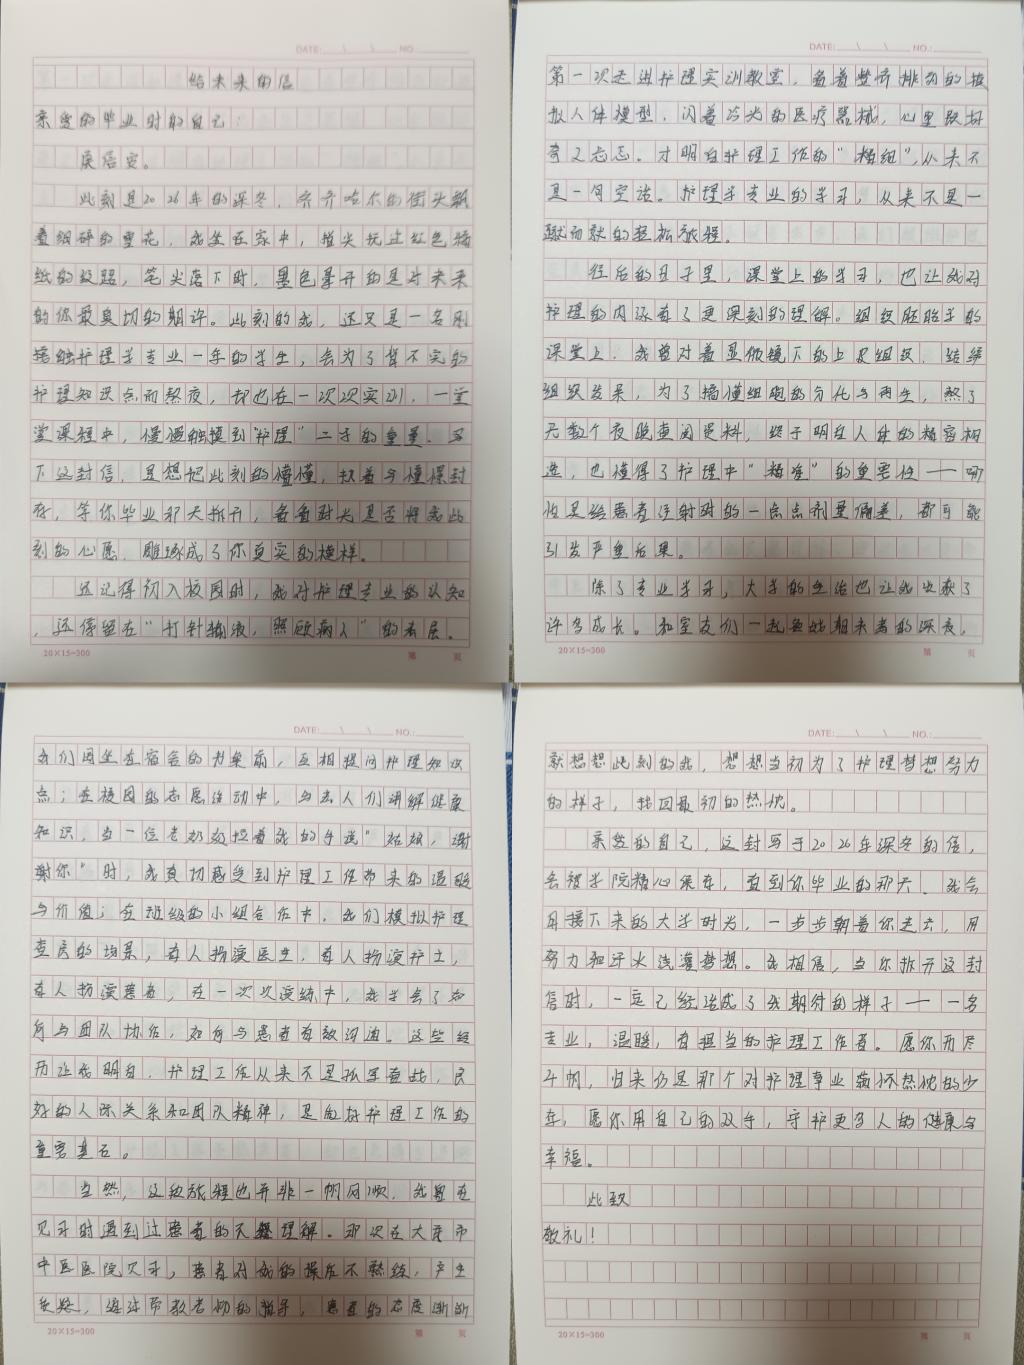 DATE: \ \ NO.
给未来的信
亲爱的毕业时的自己:
展信安。
此刻是2026年的深冬,齐齐哈尔的街头飘
着细碎的雪花,我坐在家中,指尖抚过红色稿
纸的纹路,笔尖落下时,墨色晕开的是对未来
的你最真切的期许。此刻的我,还只是一名刚
接触护理学专业一年的学生,会为了背不完的
护理知识点而熬夜,却也在一次次实训,一堂
堂课程中,慢慢触摸到“护理”二字的重量。写
下这封信,是想把此刻的懵懂,执着与憧憬封
存,等你毕业那天拆开,看看时光是否将我此
刻的心愿,雕琢成了你真实的模样。
还记得初入校园时,我对护理专业的认知
,还停留在“打针输液,照顾病人”的表层。
20×15=300 第 页
DATE: \ \ NO.:
第一次走进护理实训教室,看着整齐排列的模
拟人体模型,闪着冷光的医疗器械,心里既好
奇又忐忑。才明白护理工作的“精细”,从来不
是一句空话。护理学专业的学习,从来不是一
蹴而就的轻松旅程。
往后的日子里,课堂上的学习,也让我对
护理的内涵有了更深刻的理解。组织胚胎学的
课堂上,我曾对着显微镜下的上皮组织,结缔
组织发呆,为了搞懂细胞的分化与再生,熬了
无数个夜晚查阅资料,终于明白人体的精密构
造,也懂得了护理中“精准”的重要性——哪
怕是给患者注射时的一点点剂量偏差,都可能
引发严重后果。
除了专业学习,大学的生活也让我收获了
许多成长。和室友们一起
20×15=300 第 页
DATE: \ \ NO.:
我们围坐在宿舍的书桌前,互相提问护理知识
点;在校园的志愿活动中,与老人们讲解健康
知识,当一位老奶奶拉着我的手说“姑娘,谢
谢你”时,我真切感受到护理工作带来的温暖
与价值;在班级的小组合作中,我们模拟护理
查房的场景,有人扮演医生,有人扮演护士,
有人扮演患者,在一次次演练中,我学会了如
何与团队协作,如何与患者有效沟通。这些经
历让我明白,护理工作从来不是孤军奋战,良
好的人际关系和团队精神,是做好护理工作的
重要基石。
当然,这段旅程也并非一帆风顺,我曾在
见习时遇到过患者的不理解。那次在大庆市
中医医院见习,患者对我的操作不熟练,产生
质疑,经过带教老师的指导,患者的态度渐渐
20×15=300 第 页
DATE: \ \ NO.:
就想想此刻的我,想想当初为了护理梦想努力
的样子,找回最初的热忱。
亲爱的自己,这封写于2026年深冬的信,
会被学院精心保存,直到你毕业的那天。我会
用接下来的大学时光,一步步朝着你走去,用
努力和汗水浇灌梦想。我相信,当你拆开这封
信时,一定已经活成了我期待的样子——一名
专业,温暖,有担当的护理工作者。愿你历尽
千帆,归来仍是那个对护理事业满怀热忱的少
年,愿你用自己的双手,守护更多人的健康与
幸福。
此致
敬礼!
20×15=300 第 页